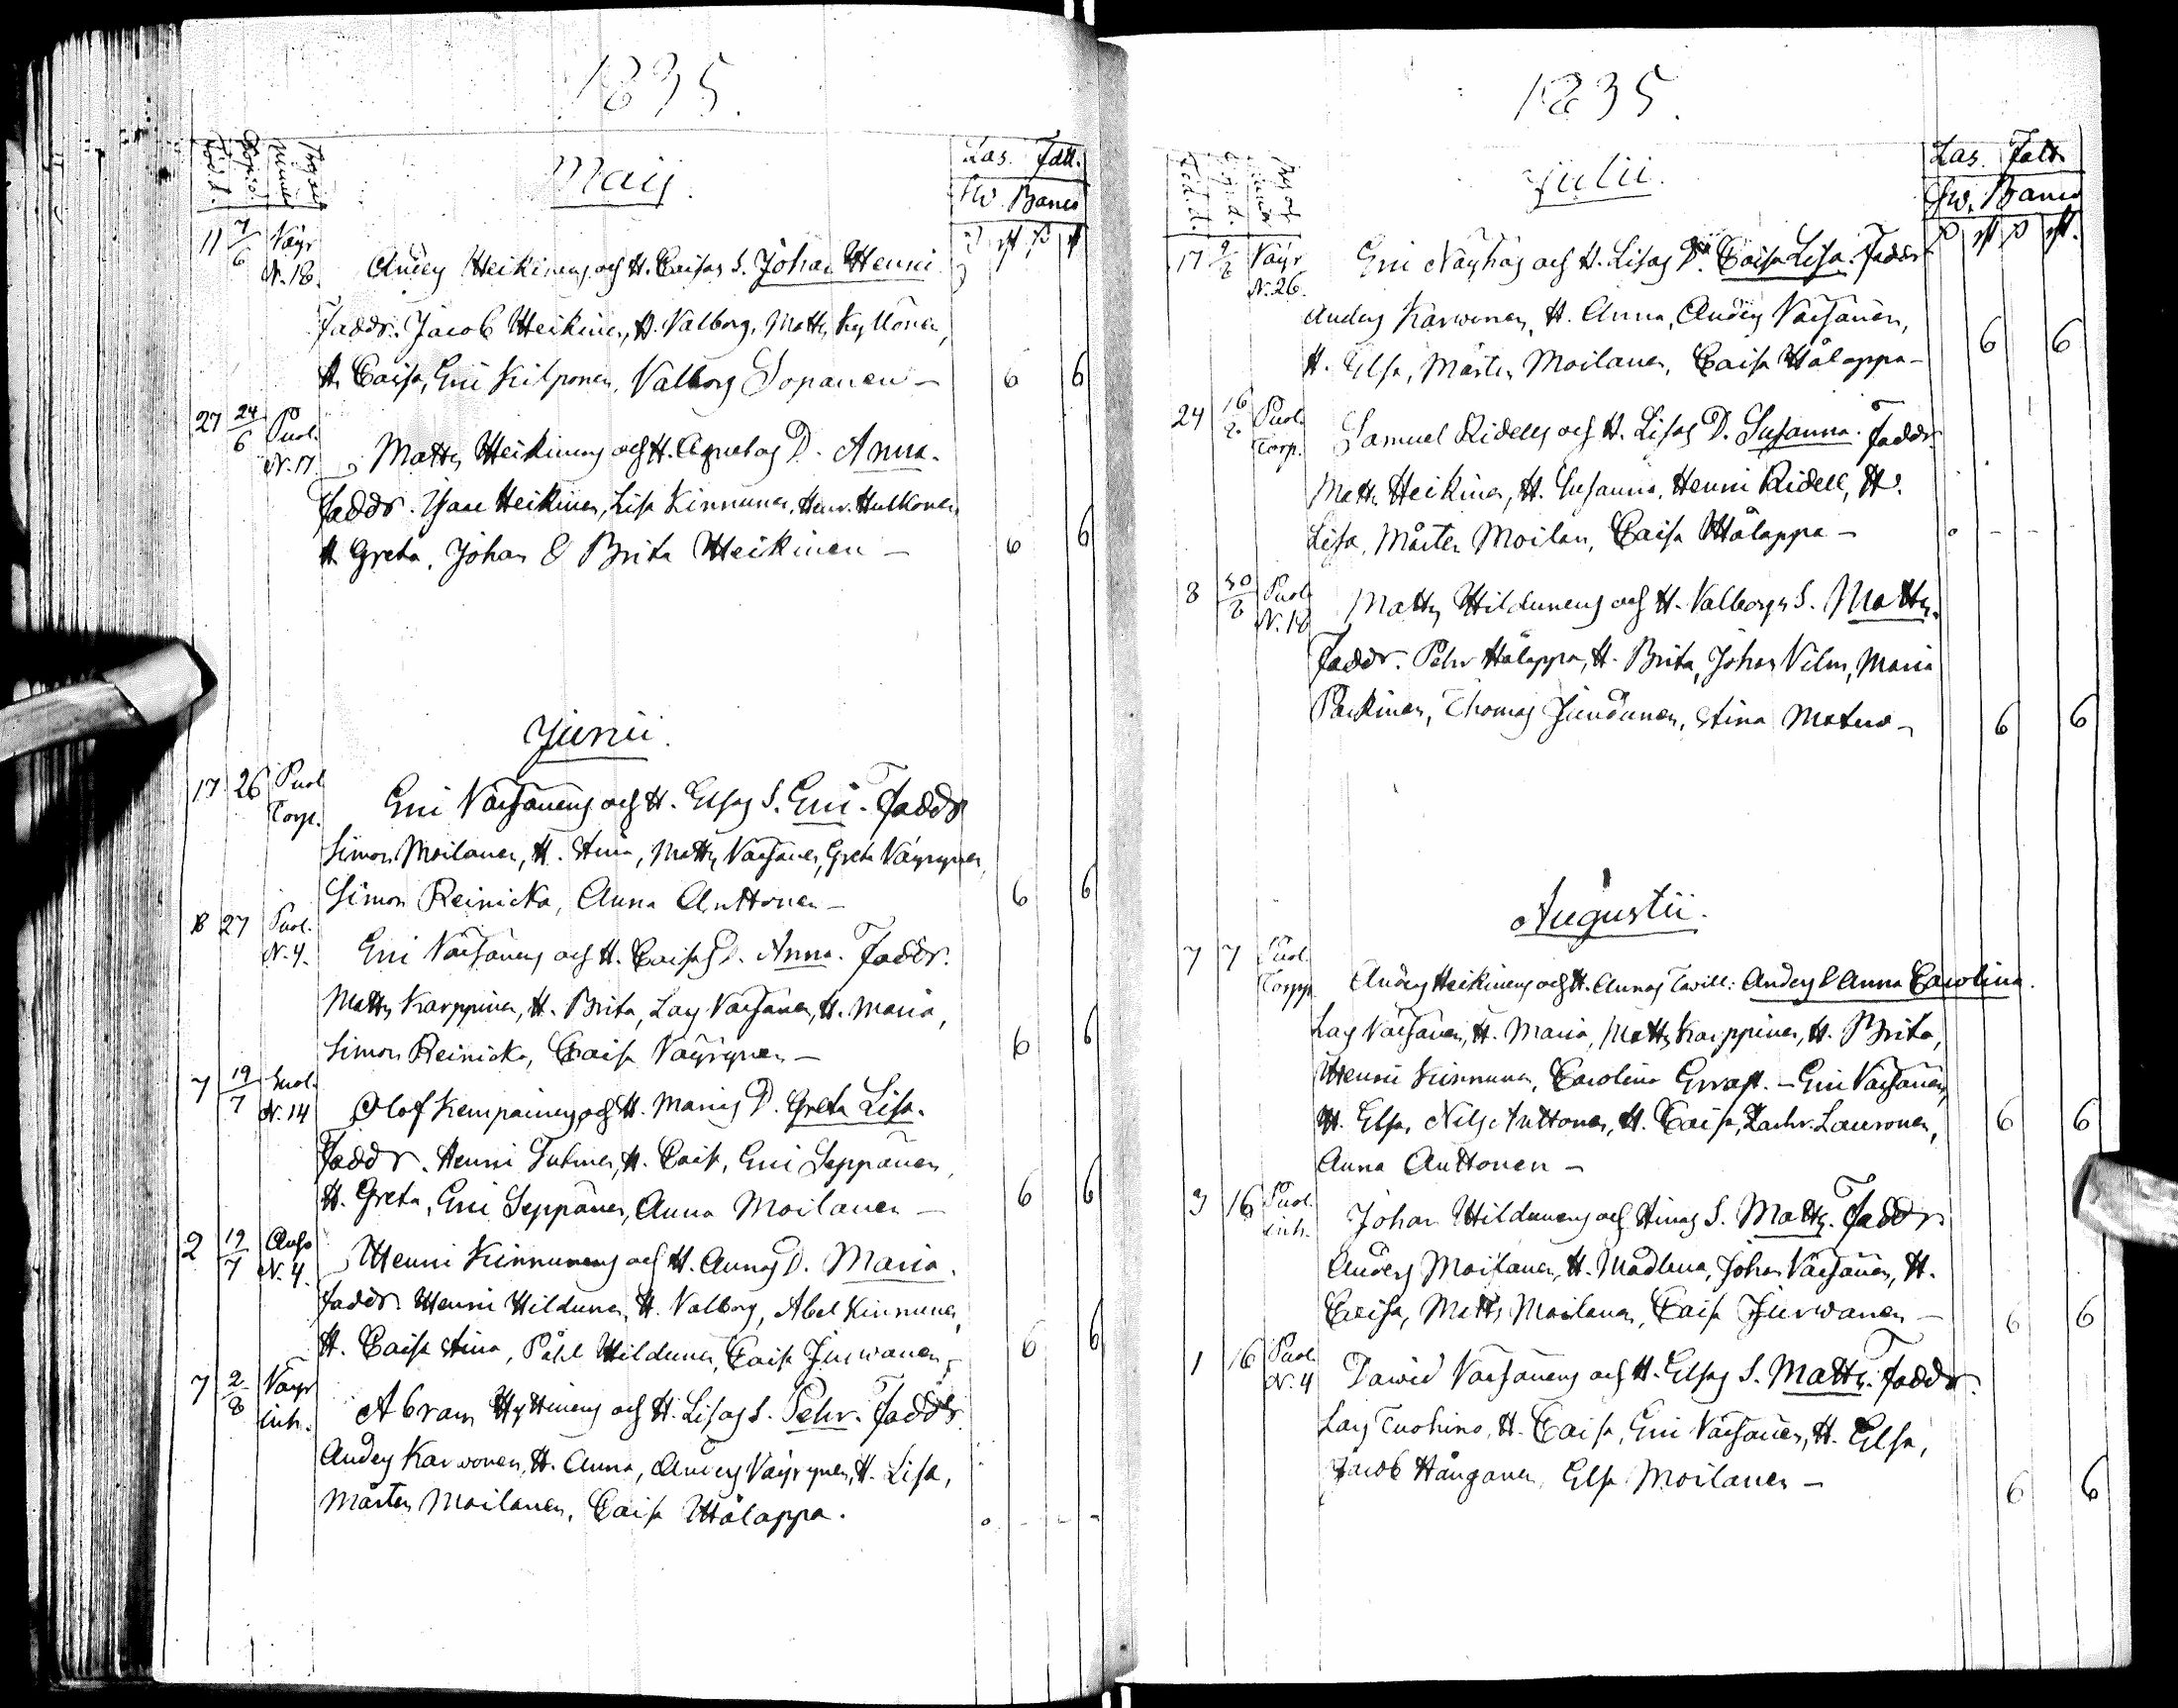 1835.
Maij.
Las. Fatt.
Sw. Banco
11 7/6 Väyr N. 18. Anders Heikinens och H. Caisas S. Johan Henric
Faddr. Jacob Heikinen, H. Valborg, Matts Kyllönen,
H. Caisa, Eric Kilponen, Valborg Sopanen – 6 6
27 24/6 Puol. N. 17. Matts Heikinens och H. Agnetas D. Anna.
Faddr. Isaac Heikinen, Lisa Kinnunen, Henr. Hulkonen,
H. Greta, Johan & Brita Heikinen – 6 6
Junii.
17 26 Puol Torp. Eric Väisänens och H. Elsas S. Eric. Faddr
Simon Moilanen, H. Stina, Matts Väisänen, Greta Väyrynen,
Simon Reinicka, Anna Anttonen – 6 6
18 27 Puol. N. 4. Eric Väisänens och H. Caisas D. Anna. Faddr.
Matts Karppinen, H. Brita, Lars Väisänen, H. Maria,
Simon Reinicka, Caisa Väyrynen – 6 6
7 19/7 Puol. N. 14 Olof Kempainens och H. Marias D. Greta Lisa.
Faddr. Henric H. Caisa, Eric Seppänen,
H. Greta, Eric Seppänen, Anna Moilanen – 6 6
2 19/7 N. 4. Henric Kinnunens och H. Annas D. Maria.
Faddr. Henric Hildunen, H. Valborg, Abel Kinnunen,
H. Caisa Stina, Påhl Hildunen, Caisa Jurwanen – 6 6
7 2/8 Väyr inh. Abram Hyttinens och H. Lisas S. Pehr. Faddr.
Anders Karwonen, H. Anna, Anders Väyrynen, H. Lisa,
Mårten Moilanen, Caisa Hålappa. – –
1835.
Julii.
Las. Fatt.
Sw. Banco
17 2/8 Väyr N. 26. Eric Näyhäs och H. Lisas D. Caisa Lisa. Faddr
Anders Karwonen, H. Anna, Anders Väisänen,
H. Elsa, Mårten Moilanen, Caisa Hålappa – 6 6
24 16/8 Puol. Torp. Samuel Ridells och H. Lisas D. Susanna. Faddr
Matts Heikinen, H. Susanna, Henric Ridell, H.
Lisa, Mårten Moilan, Caisa Hålappa – – –
8 30/8 Puol N. 18 Matts Hildunens och H. Valborgs S. Matts.
Faddr. Pehr Hålappa, H. Brita, Johan Vilm, Maria
Parkinen, Thomas Jundunen, Stina Matero – 6 6
Augustii.
7 7 Puol. Torpp Anders Heikinens och H. Annas Tvill: Anders & Anna Carolina.
Lars Väisänen, H. Maria, Matts Karppinen, H. Brita,
Henric Kinnunen, Carolina Ervast. – Eric Väisänen,
H. Elsa, Nils Anttonen, H. Caisa, Zachr. Lauronen, 6 6
Anna Anttonen –
3 16 Puol. inh. Johan Hildunens och Stinas S. Matts. Faddr
Anders Moilanen, H. Madlena, Johan Väisänen, H.
Caisa, Matts Moilanen, Caisa Jurwanen – 6 6
1 16 Puol. N. 4 Dawid Väisänens och H. Elsas S. Matts. Faddr.
Lars Tuohino, H. Caisa, Eric Väisänen, H. Elsa,
Jacob Hånganen, Elsa Moilanen – 6 6